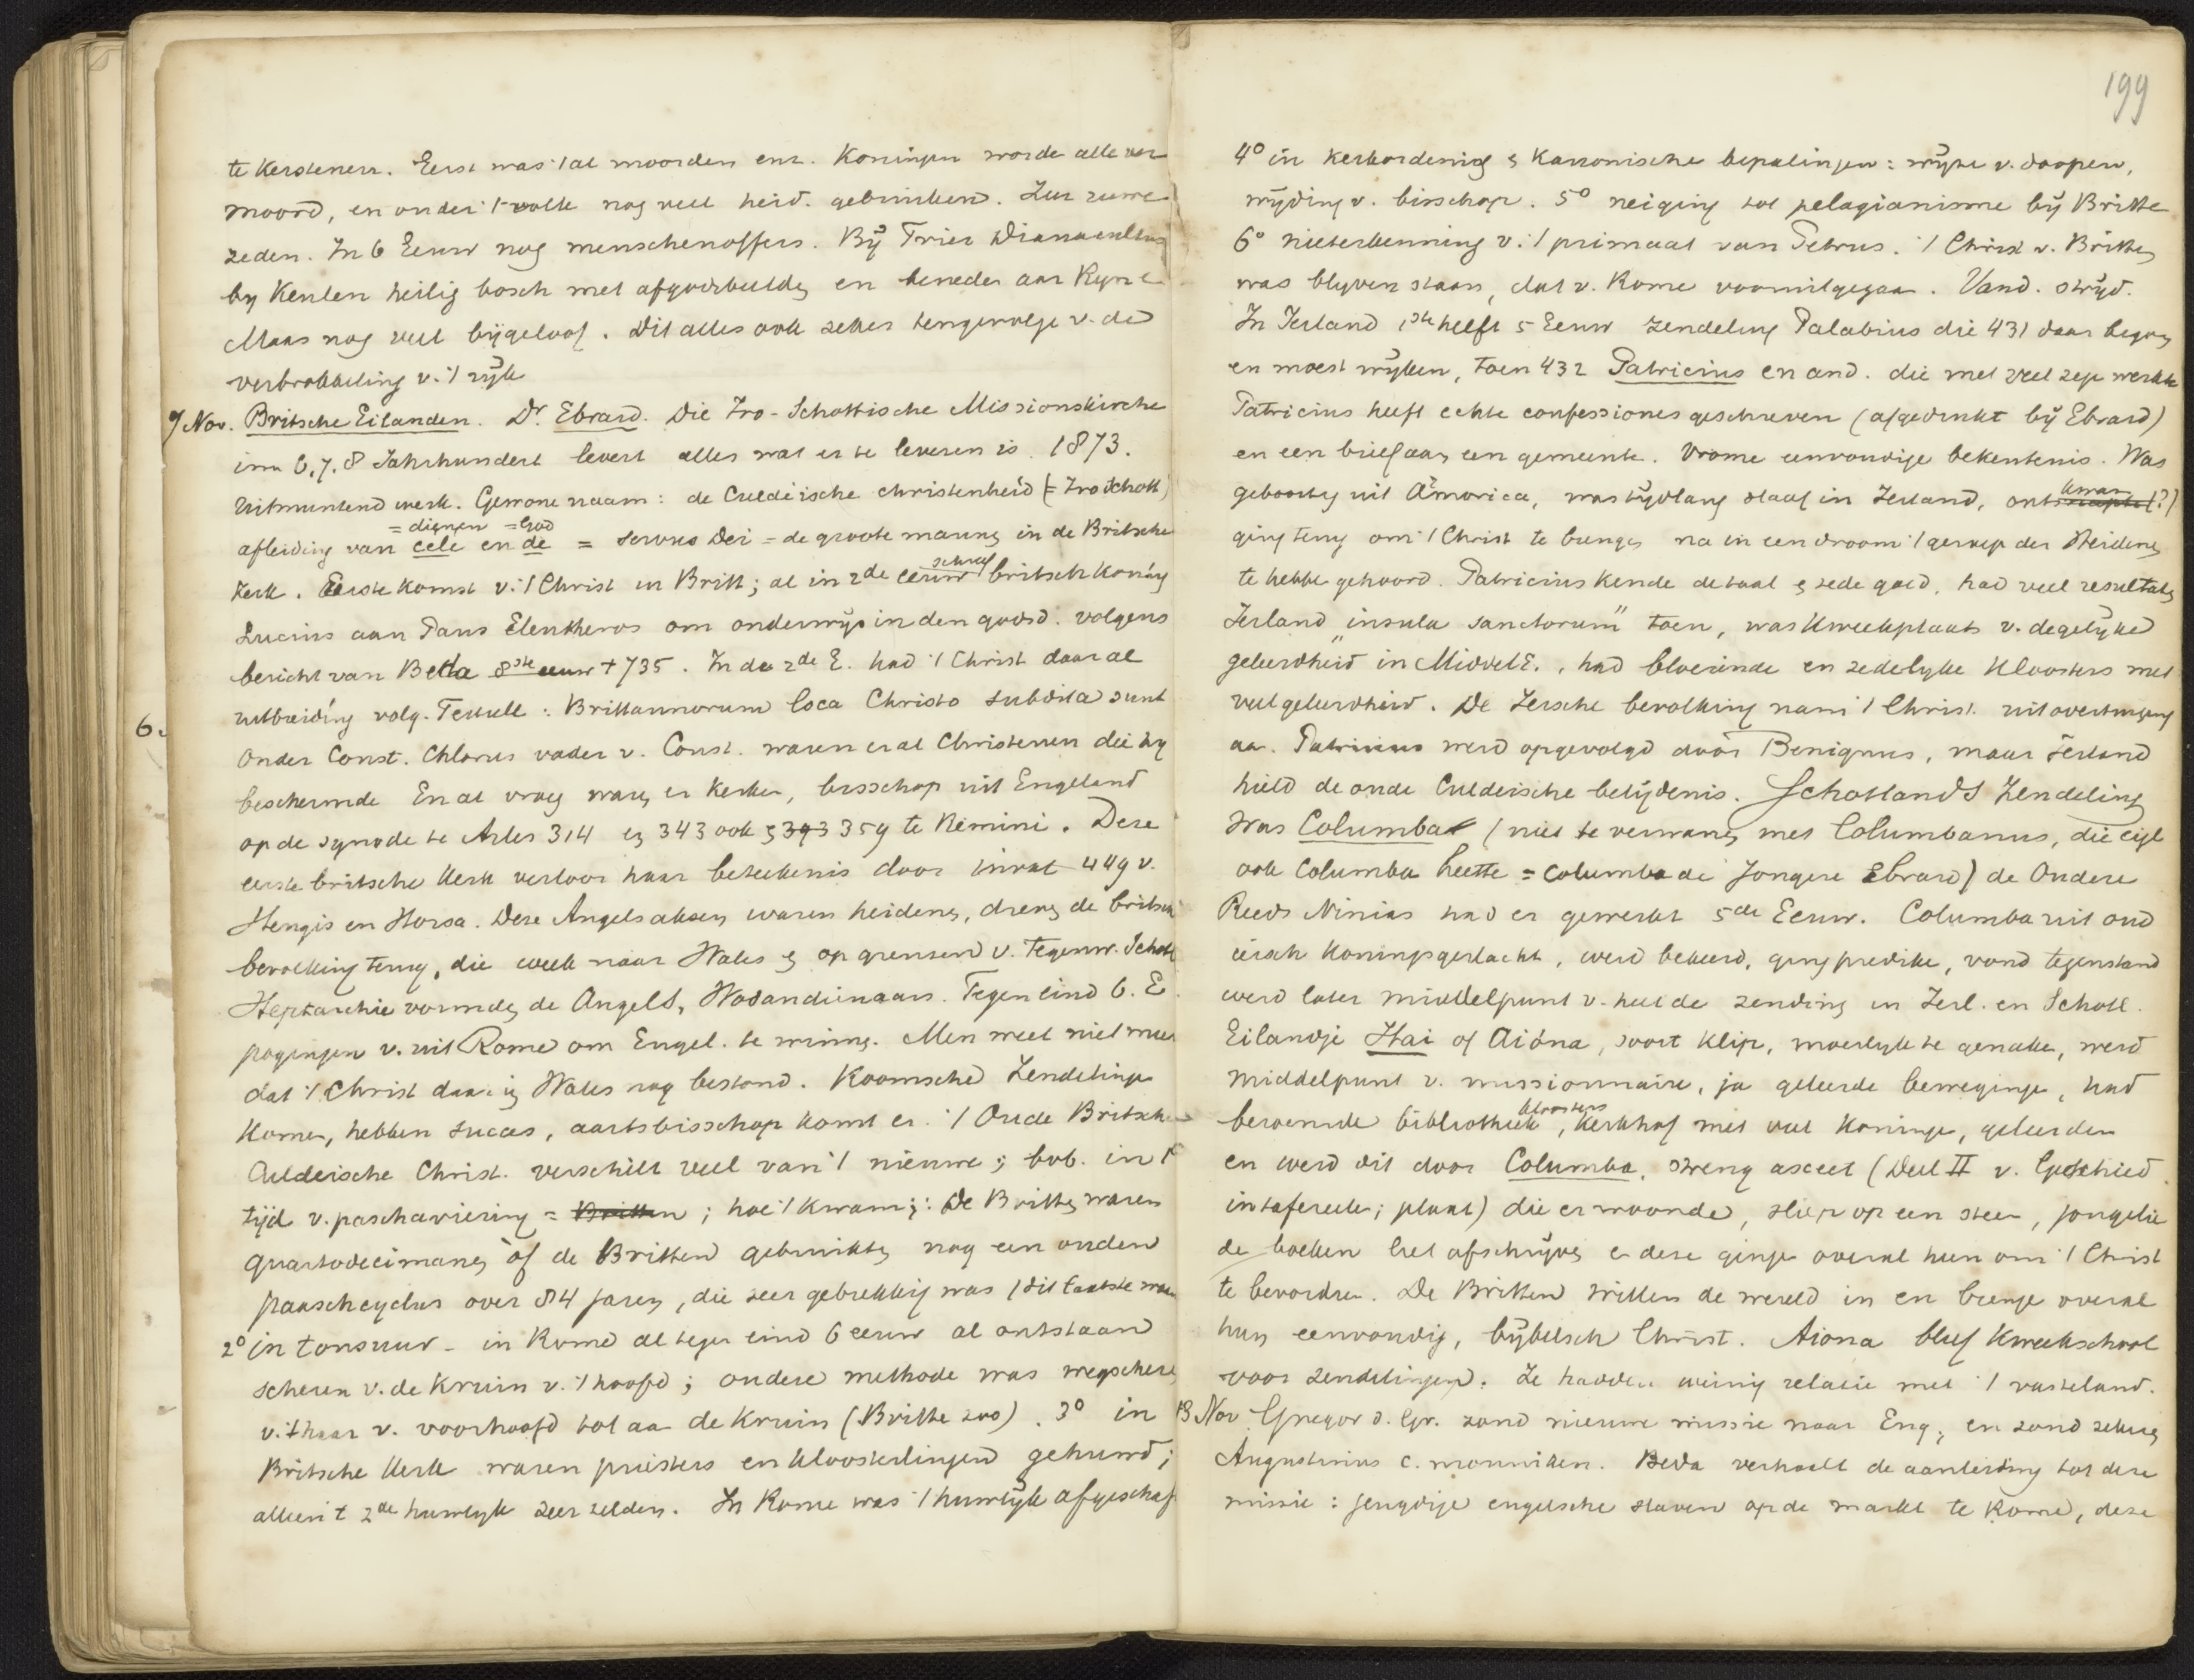 te kerstenen. Eerst was 't al moorden enz. Koningen worde alle ver
moord, en onder 't volk nog veel heid. gebruiken. Zeer ruwe
zeden. In 6 Eeuw nog menschenoffers. By Trier Dianacultus
by Keulen heilig bosch met afgodsbeelden en beneden aan Ryn e
Maas nog veel bijgeloof. Dit alles ook zeker tengevolge v. de
verbrokkeling v. 't rijk
9 Nov. Britsche Eilanden. Dr. Ebrard. Die Iro-Schottische Missionskirche
im 6, 7, 8 Jahrhundert levert alles wat er te leveren is. 1873.
Uitmuntend werk. Gewone naam: de Culdeische christenheid (= Iroschott)
= dienen = God
afleiding van cele en de = servus Dei = de groote mannen in de Britsche
schreef
kerk. Eerste komst v. 't Christ in Britt; al in 2de eeuw britsch koning
Lucius aan Paus Eleutheros om onderwijs in den godsd. volgens
bericht van Beda 8ste eeuw † 735. In de 2de E. had 't Christ daar al
uitbreiding volg. Tertull: Brittannorum loca Christo subdita sunt
Onder Const. Chlorus vader v. Const. waren er al Christenen die hy
beschermde En al vroeg waren er kerken, bisschop uit Engeland
op de synode te Arles 314 en 343 ook & 393 359 te Rimini. Deze
eerste britsche kerk verloor haar beteekenis door inval 449 v.
Hengis en Horsa. Deze Angelsaksen waren heidenen, dreven de britsche
bevolking terug, die week naar Wales & op grenzen v. tegenw. Schotl
Heptarchie vormden de Angels, Wodandienaars. Tegen eind 6. E.
pogingen v. uit Rome om Engel. te winnen. Men weet niet meer
dat 't Christ daar in Wales nog bestond. Roomsche Zendelingen
komen, hebben succes, aartsbisschop komt er. 't Oude Britsche
Culdeische Christ. verschilt veel van 't nieuwe; bvb. in 1°
tijd v. paschaviering = Britten; hoe 't kwam;: De Britten waren
quartodecimanen òf de Britten gebruikten nog een ouden
paaschcyclus over 84 jaren, die zeer gebrekkig was (dit laatste waar
2° in tonsuur - in Rome al tegen eind 6 eeuw al ontstaan
scheren v. de kruin v. 't hoofd; andere methode was wegscheren
v. 't haar v. voorhoofd tot aan de kruin (Britten zoo). 3° in
Britsche kerk waren priesters en kloosterlingen gehuwd;
alleen 't 2de huwelyk zeer zelden. In Rome was 't huwelijk afgeschaf
199
4° in kerkordening & kanonische bepalingen: wijze v. doopen,
wijding v. bisschop. 5° neiging tot pelagianisme bij Britte
6° nieterkenning v. 't primaat van Petrus. 't Christ v. Britten
was blyven staan, dat v. Rome vooruitgegaan. Vand. strijd.
In Ierland 1ste helft 5 Eeuw zendeling Paladius die 431 daar begon
en moest wijken, toen 432 Patricius en and. die met veel zegen werkte
Patricius heeft echte confessiones geschreven (afgedrukt bij Ebrard)
en een brief aan een gemeente. Vrome eenvoudige bekentenis. Was
kwam
geboortig uit Armorica, was tijdlang slaaf in Ierland, ontsnapte (?)
ging terug om 't Christ te brengen na in een droom 't geroep der Heidenen
te hebben gehoord. Patricius kende de taal & zede goed, had veel resultaten
Ierland "insula sanctorum" toen, was kweekplaats v. degelijke
geleerdheid in MiddelE., had bloeiende en zedelyke kloosters met
veel geleerdheid. De Iersche bevolking nam 't Christ. uit overtuiging
aan. Patricius werd opgevolgd door Benignus, maar Ierland
hield de oude Culdeische belijdenis. Schotlands Zendeling
was Columba (niet te verwarren met Columbanus, die eigl
ook Columba heette = Columba de Jongere Ebrard) de Oudere
Reeds Ninias had er gewerkt 5de Eeuw. Columba uit oud
iersch koningsgeslacht, werd bekeerd, ging prediken, vond tegenstand
werd later middelpunt v. heel de zending in Ierl. en Schotl.
Eilandje Hai of Aiona, soort klip, moeilyk te genaken, werd
middelpunt v. missionnaire, ja geleerde bewegingen, had
kloosters
beroemde bibliotheek, kerkhof met veel koningen, geleerden
en werd dit door Columba, streng asceet (Deel II v. Geschied.
in tafereelen; plaat) die er woonde, sliep op een steen, jongelie
de boeken liet afschrijven en deze gingen overal heen om 't Christ
te bevorderen. De Britten trokken de wereld in en brengen overal
hun eenvoudig, bijbelsch Christ. Aiona bleef kweekschool
voor zendelingen. Ze hadden weinig relatie met 't vasteland.
13 Nov Gregor d. Gr. zond nieuwe missie naar Eng, en zond zekeren
Augustinus c. monniken. Beda verhaalt de aanleiding tot deze
missie: jeugdige engelsche slaven op de markt te Rome, deze